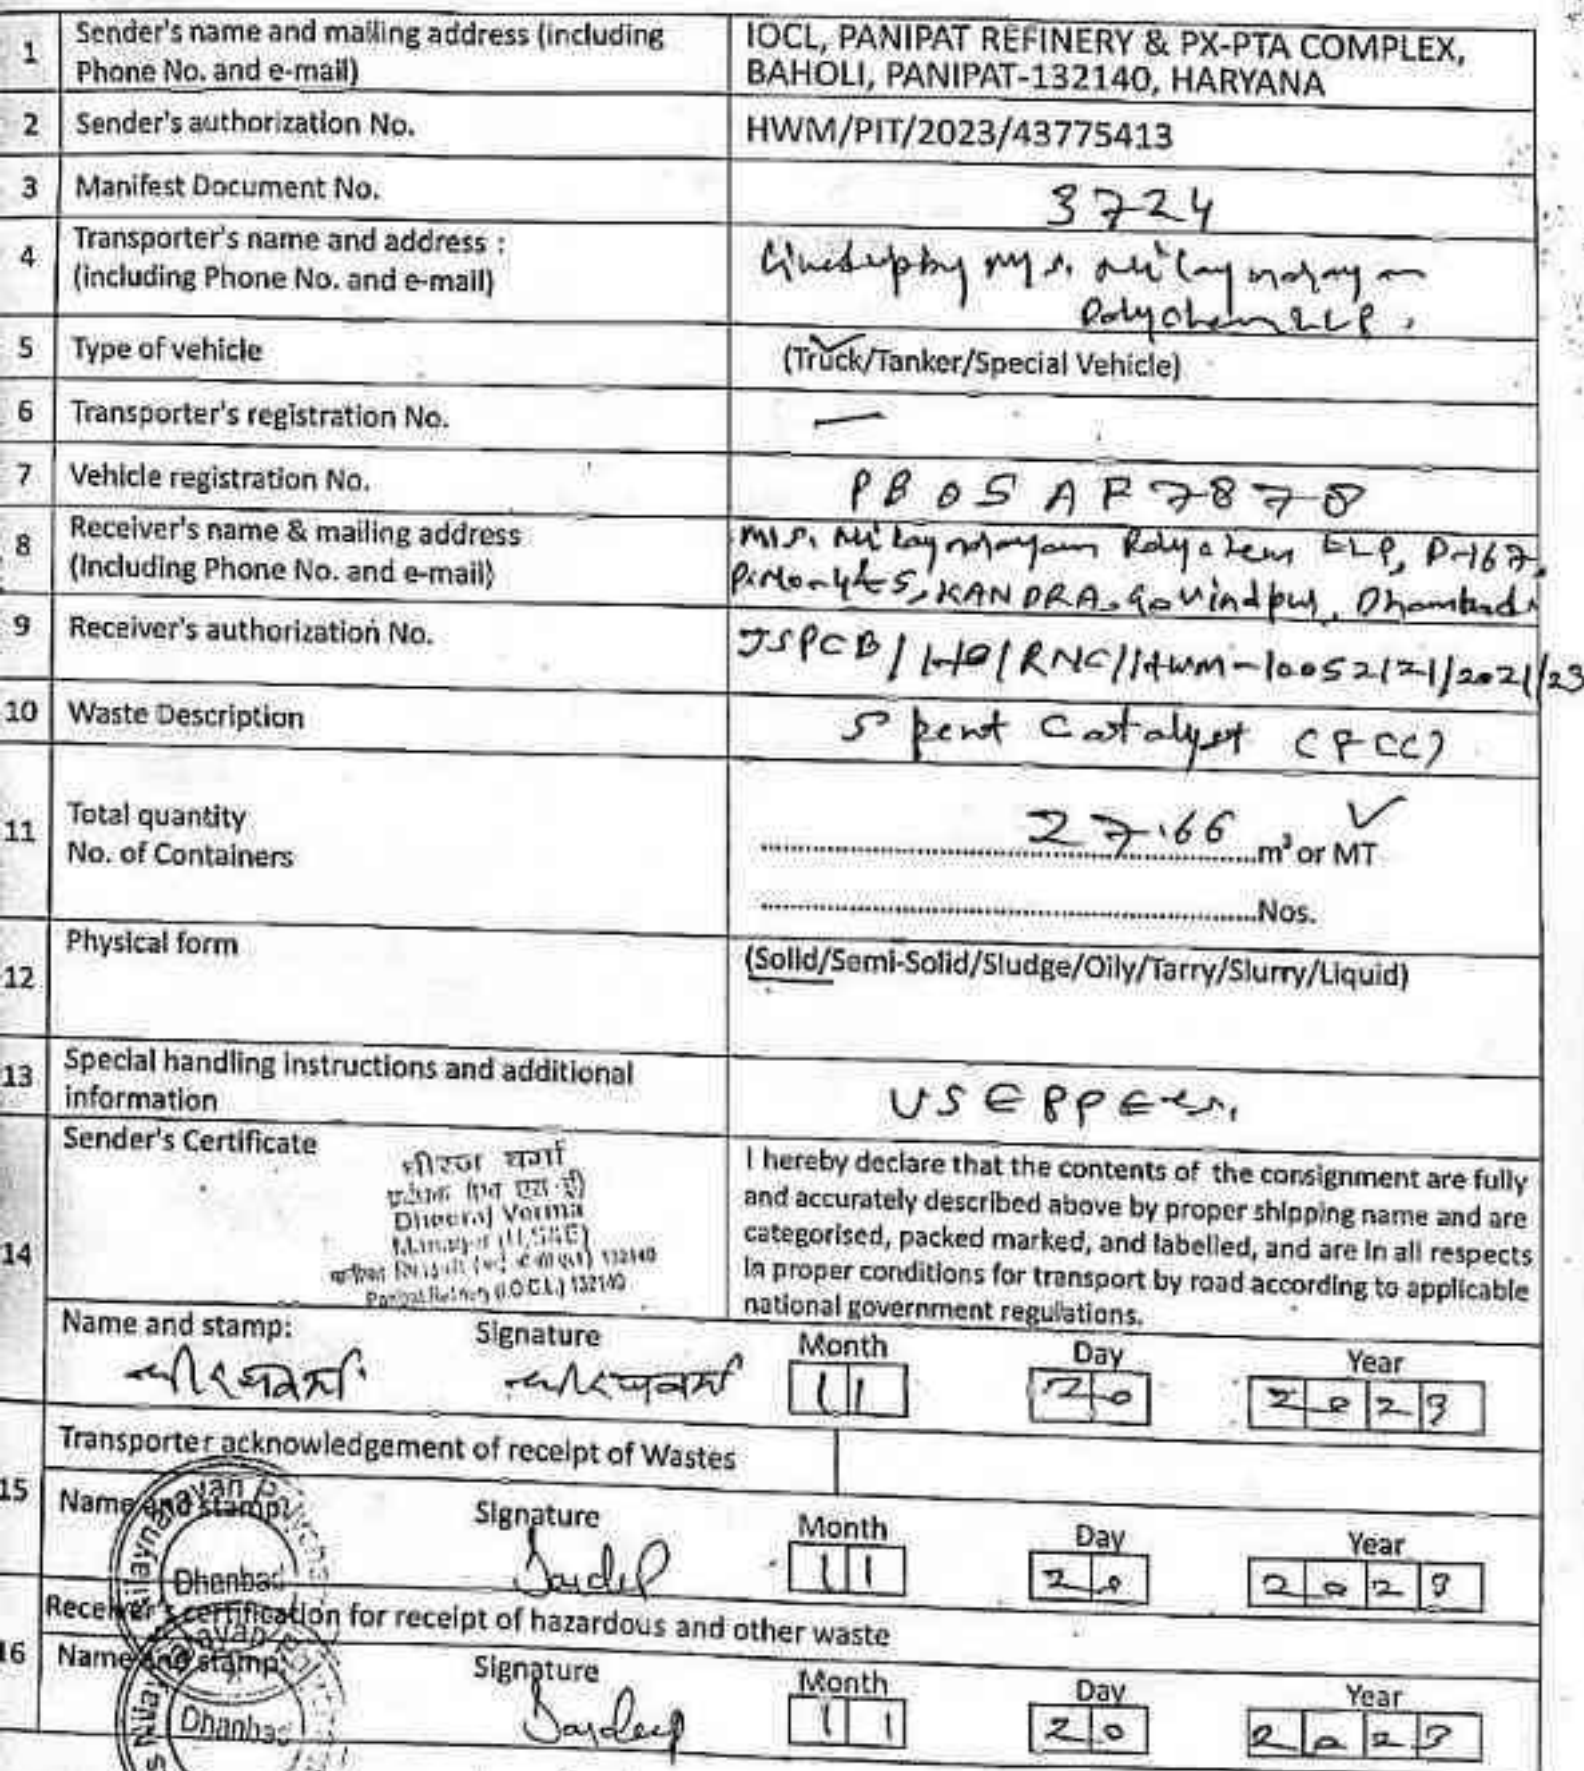 1 Sender's name and mailing address (including
Phone No. and e-mail)
IOCL, PANIPAT REFINERY & PX-PTA COMPLEX,
BAHOLI, PANIPAT-132140, HARYANA
2 Sender's authorization No.
HWM/PIT/2023/43775413
3 Manifest Document No.
3724
4 Transporter's name and address :
(including Phone No. and e-mail)
M/s. Nilaynarayan
Polychem LLP.
5 Type of vehicle
(Truck/Tanker/Special Vehicle)
6 Transporter's registration No.
—
7 Vehicle registration No.
PB05AF7878
8 Receiver's name & mailing address
(Including Phone No. and e-mail)
M/s. Nilaynarayan Polychem LLP, P-167,
KANDRA, Govindpur, Dhanbad
9 Receiver's authorization No.
JSPCB/HO/RNC/HWM-10052121/2021/23
10 Waste Description
Spent Catalyst (FCC)
11 Total quantity
No. of Containers
27.66 m³ or MT ✓
Nos.
12 Physical form
(Solid/Semi-Solid/Sludge/Oily/Tarry/Slurry/Liquid)
13 Special handling instructions and additional
information
USE PPE
14 Sender's Certificate
धीरज वर्मा
Dheeraj Verma
Manager (HS&E)
132140
Panipat Refinery (I.O.C.L.) 132140
I hereby declare that the contents of the consignment are fully
and accurately described above by proper shipping name and are
categorised, packed marked, and labelled, and are in all respects
in proper conditions for transport by road according to applicable
national government regulations.
Name and stamp: Signature Month Day Year
धीरज वर्मा धीरज वर्मा 11 20 2023
15 Transporter acknowledgement of receipt of Wastes
Name and stamp: Signature Month Day Year
Nilaynarayan Polychem
Dhanbad
11 20 2023
16 Receiver's certification for receipt of hazardous and other waste
Name and stamp: Signature Month Day Year
Nilaynarayan
Dhanbad
11 20 2023